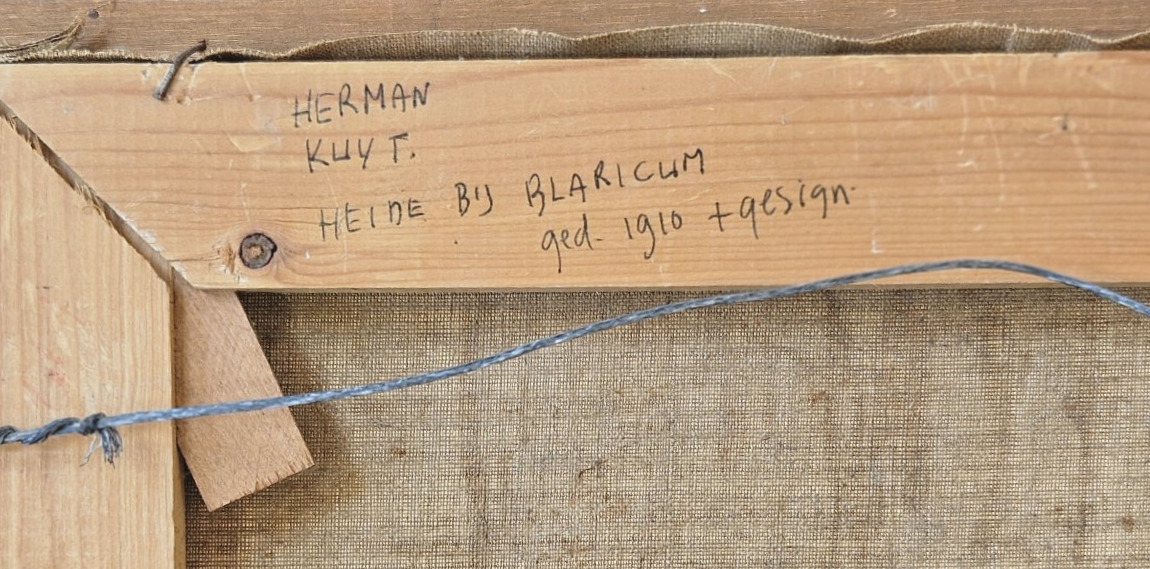 HERMAN
KUYT.
HEIDE BIJ BLARICUM
ged. 1910 + gesign.